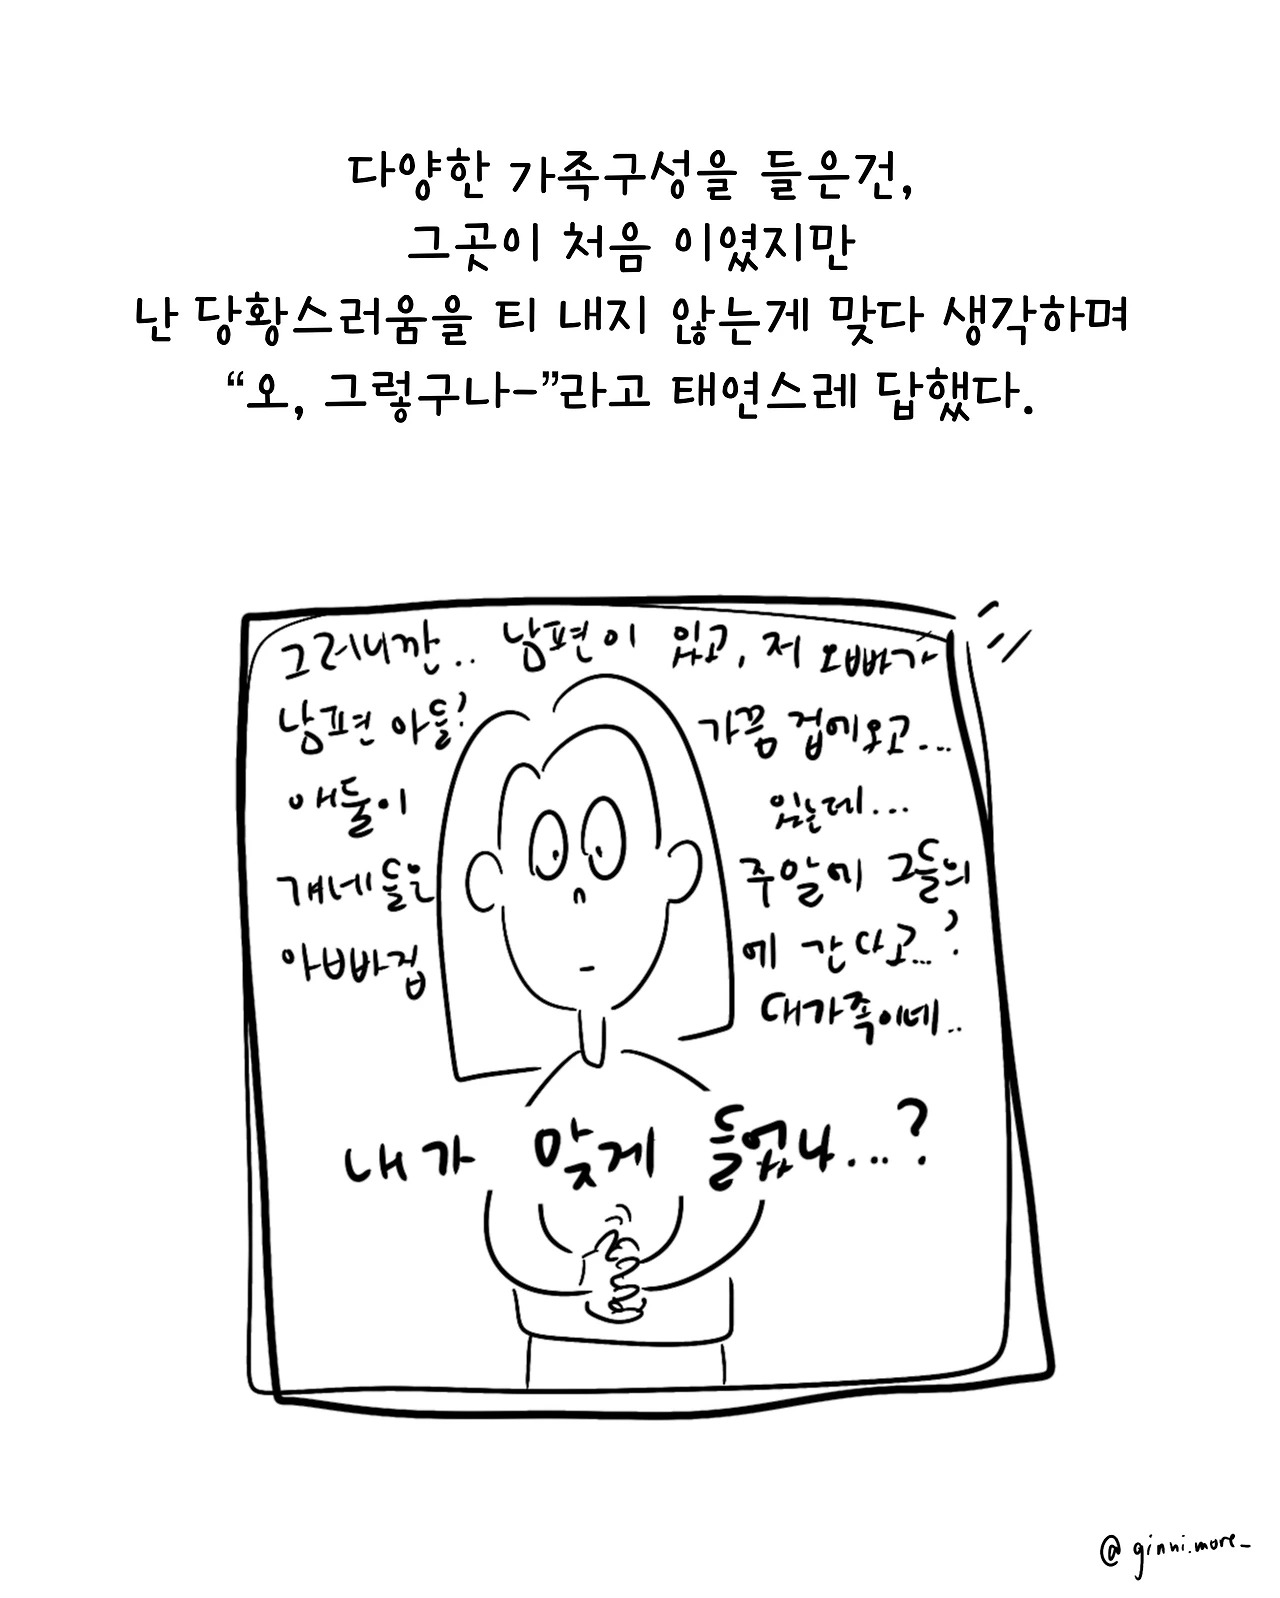 다양한 가족구성을 들은건,
그곳이 처음 이였지만
난 당황스러움을 티 내지 않는게 맞다 생각하며
“오, 그렇구나-”라고 태연스레 답했다.
그러니깐.. 남편이 있고, 저 오빠가
남편 아들? 가끔 집에오고...
애둘이 있는데...
걔네들은 주말에 그들의
아빠집 에 간다고...?
대가족이네..
내가 맞게 들었나...?
@ginni.more_